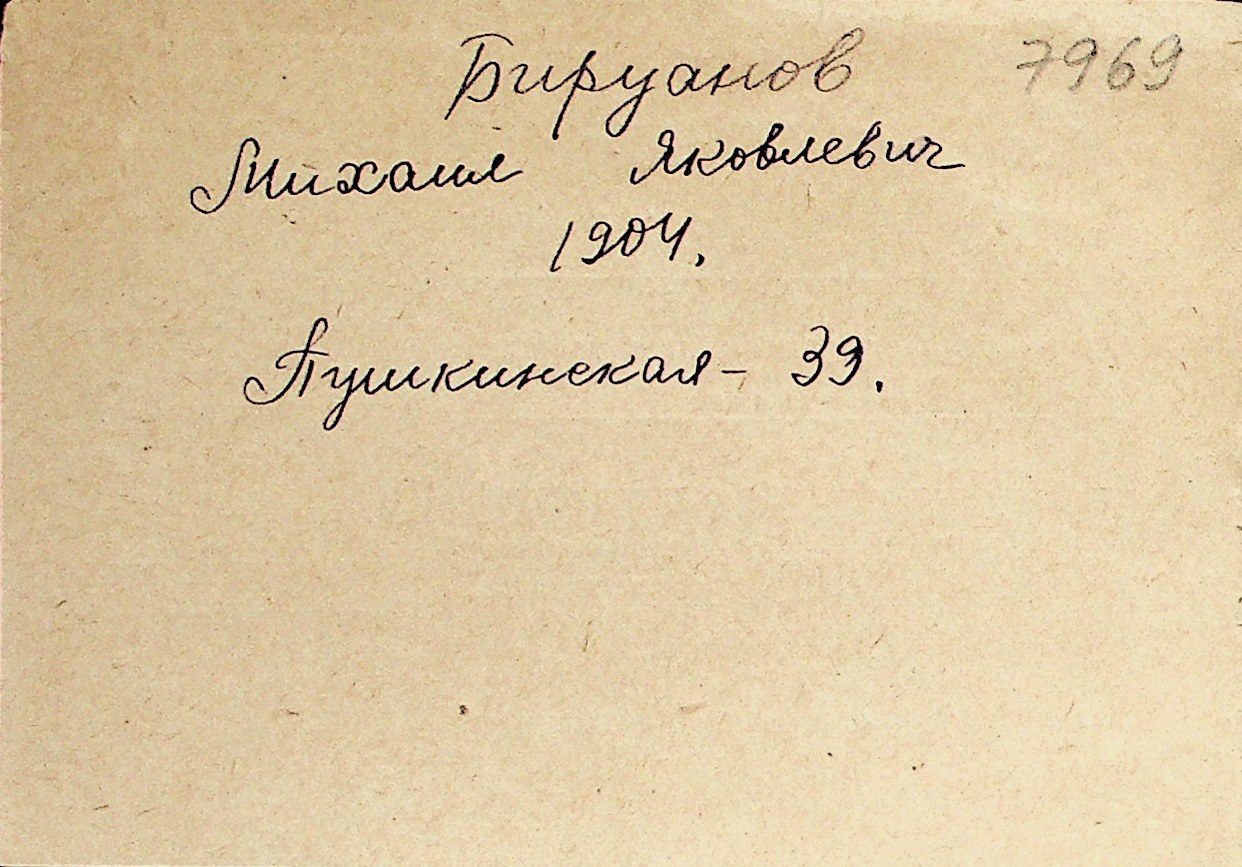 Бируанов 7969
Михаил Яковлевич
1904.
Пушкинская - 39.